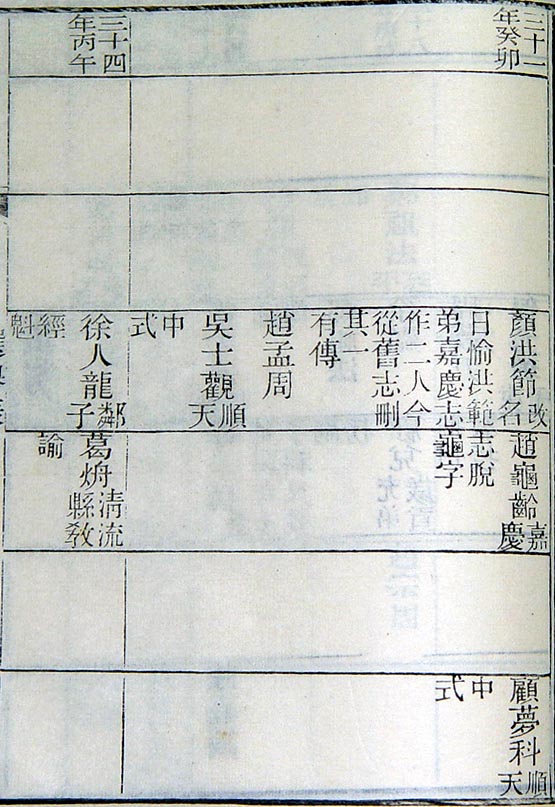 三十一
年癸卯
顏洪節改
名
日愉洪範
弟嘉慶志
作二人今
從舊志刪
其一
有傳
趙孟周
吳士觀順
天
中
式
趙龜齡嘉
慶
志脫
龜字
顧夢科順
天
中
式
三十四
年丙午
徐人龍鄰
子
經
魁
葛清流
縣教
諭